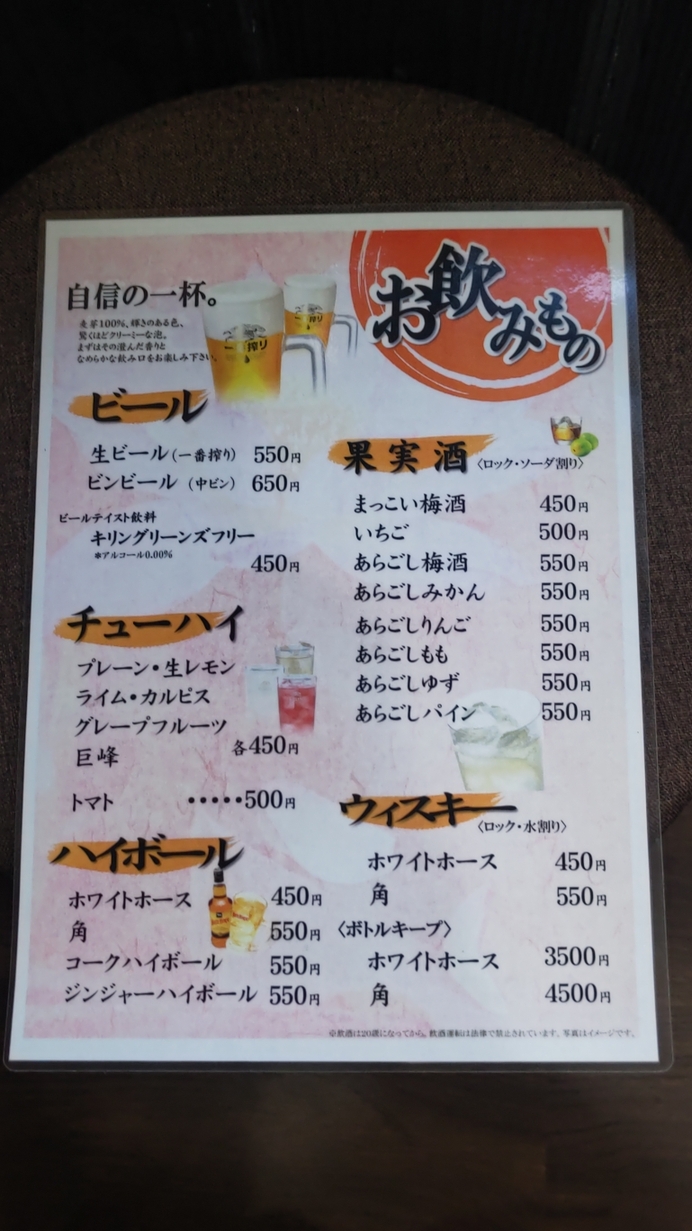 お飲みもの
自信の一杯。
麦芽100%、輝きのある色、
驚くほどクリーミーな泡。
まずはその澄んだ香りと
なめらかな飲み口をお楽しみ下さい。
一番搾り
ビール
生ビール(一番搾り) 550円
ビンビール (中ビン) 650円
ビールテイスト飲料
キリングリーンズフリー
*アルコール0.00%
450円
チューハイ
プレーン・生レモン
ライム・カルピス
グレープフルーツ
巨峰
各450円
トマト •••••500円
ハイボール
ホワイトホース 450円
角 550円
コークハイボール 550円
ジンジャーハイボール 550円
果実酒 〈ロック・ソーダ割り〉
まっこい梅酒 450円
いちご 500円
あらごし梅酒 550円
あらごしみかん 550円
あらごしりんご 550円
あらごしもも 550円
あらごしゆず 550円
あらごしパイン 550円
ウィスキー
〈ロック・水割り〉
ホワイトホース 450円
角 550円
〈ボトルキープ〉
ホワイトホース 3500円
角 4500円
※飲酒は20歳になってから。飲酒運転は法律で禁止されています。写真はイメージです。